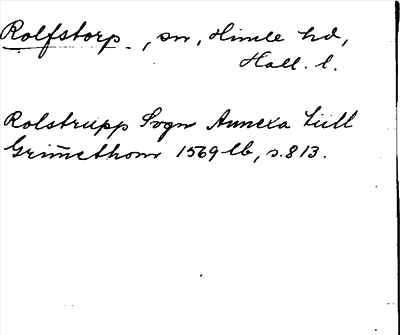 Rolfstorp., sn, Himle hd,
Hall. l.
Rolstrupp Sogn Annexa tiill
Grim̅ethonn 1569 lb, s. 813.